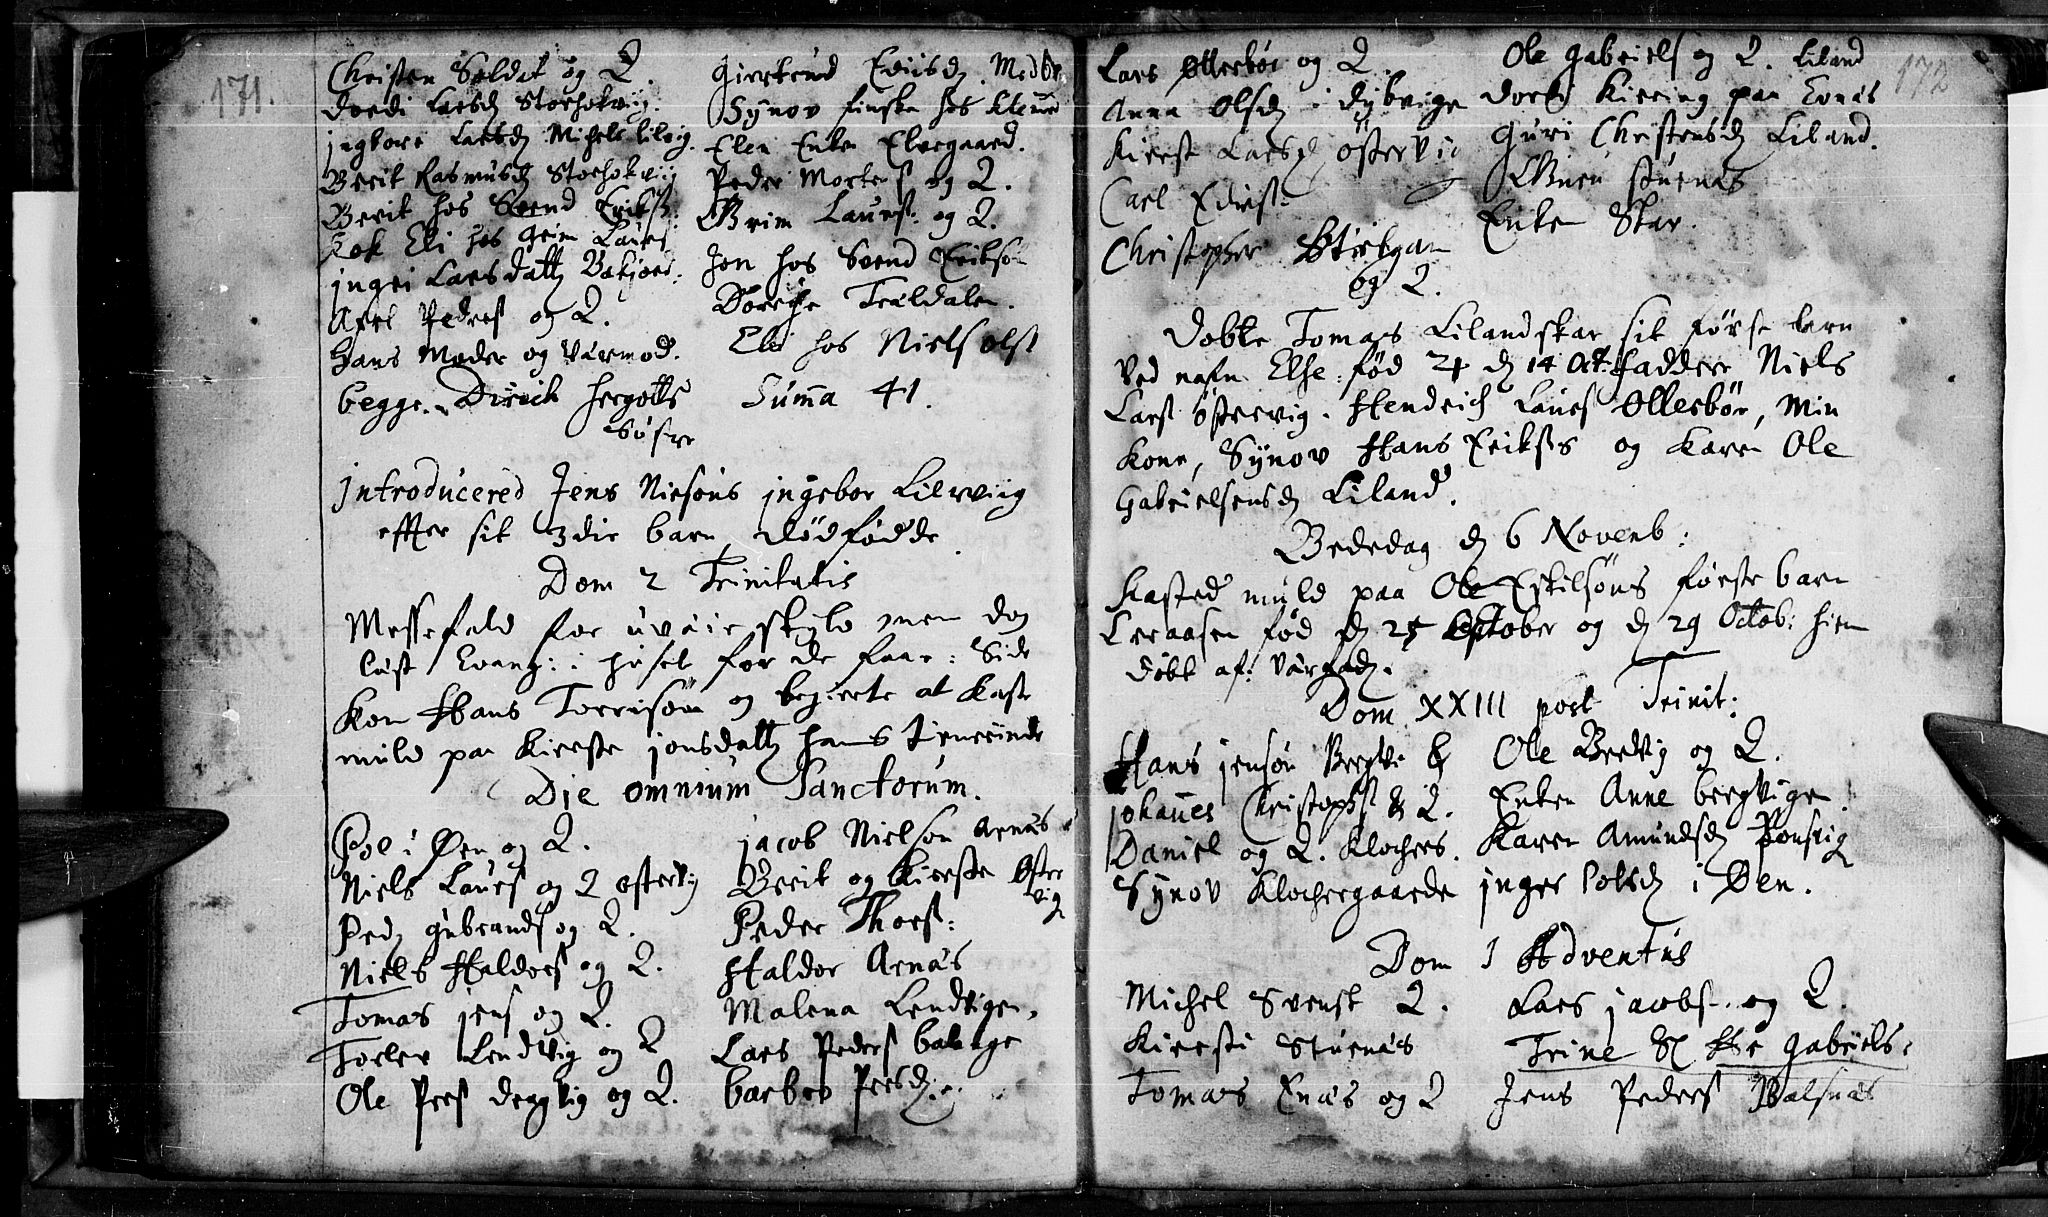 171.
Christen Soldat og Q.
Dordi Larsd Storhokviig.
Ingbore Larsd Michels lilvig.
Berit Rasmusd Storhokviig
Berit hos Svend Erikss.
Kok Eli hos Grim Laurs
Ingri Larsdatt
Axel Peders og Q.
Hans Moder og Värmod.
begge. Dirich hergotts
Søstre
Giertrud
Synov finske hos
Elen Enke Elvegaard.
Peder Mortens og Q.
Grim Laurs. og Q.
Jon hos Svend Eriksøn
Dorethe Traldalen.
Eli hos Niels Olss
Summa 41.
Introducered Jens Nielsøns Ingebor Lilleviig
effter sit 3die barn dødfødde.
Dom 2 Trinitatis
Messefald for uveir skyld men dog
læst Evang: i huset for de faae: Side
Kom Hans Torrisøn og begierte at kaste
muld paa Kirste Jonsdatt hans tieneninde
Die omnium Sanctorum.
Pol i Øen og Q.
Niels Laurs og Q østervig
Ped gubrands og Q.
Niels Haldors og Q.
Tomas Jens og Q.
Torler Lendvig og Q
Ole Pers dragvig og Q.
Jacob Nielsøn Arnäs
Berit og Kirste Øster
vig
Peder Thors:
Haldor Arnäs
Malena Lendvigen.
Lars Peders balange
barbro Persd.
172
Lars Ollerbør og Q.
Anna Olsd i dybvige
Kirste Larsd østervig
Carl
Christopher
og Q.
Ole Gabriels og Q. Liland
Dorte Kiering paa Evnäs
Guri Christensd Liland.
Guru sturnäs
Enken Skar.
Dobte Tomas Lilandskar sit første barn
ved nafn Else: fød 4 d 14 Oct. faddere Niels
Lars østervig. Hendrich Laurs Ollerbør, Min
Kone, Synov Hans Erikses og Karen Ole
Gabrielsensd Liland.
Bededag d 6 Novemb:
Kasted muld paa Ole Eskilsøns første barn
Leraasen fød d 25 October og d 29 Octob: hiem
døbt af: Värfad.
Dom XXIII post Trinit:
Hans Jensøn Bergvi &
Johannes Christophs & Q.
Daniel og Q. Klochers.
Synov Klochergaarde
Ole Bredvig og Q.
Enken Anne bergvigen.
Karen Amundsd Ponsvig
Inger Polsd i Øen.
Dom 1 Adventus
Michel Svensk Q.
Kirsti Sturnäs
Tomas Enäs og Q
Lars Jacobs. og Q.
Trine Gabriels.
Jens Peders Balsnäs